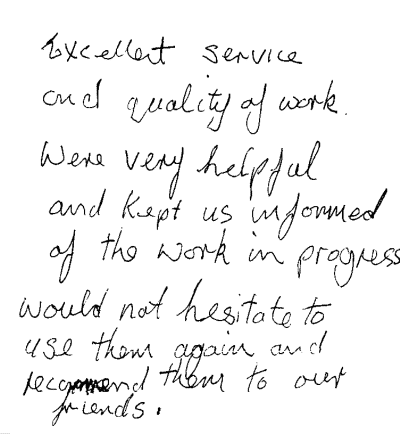 Excellent service
and quality of work.
Were very helpful
and kept us informed
of the work in progress
would not hesitate to
use them again and
recommend them to our
friends.